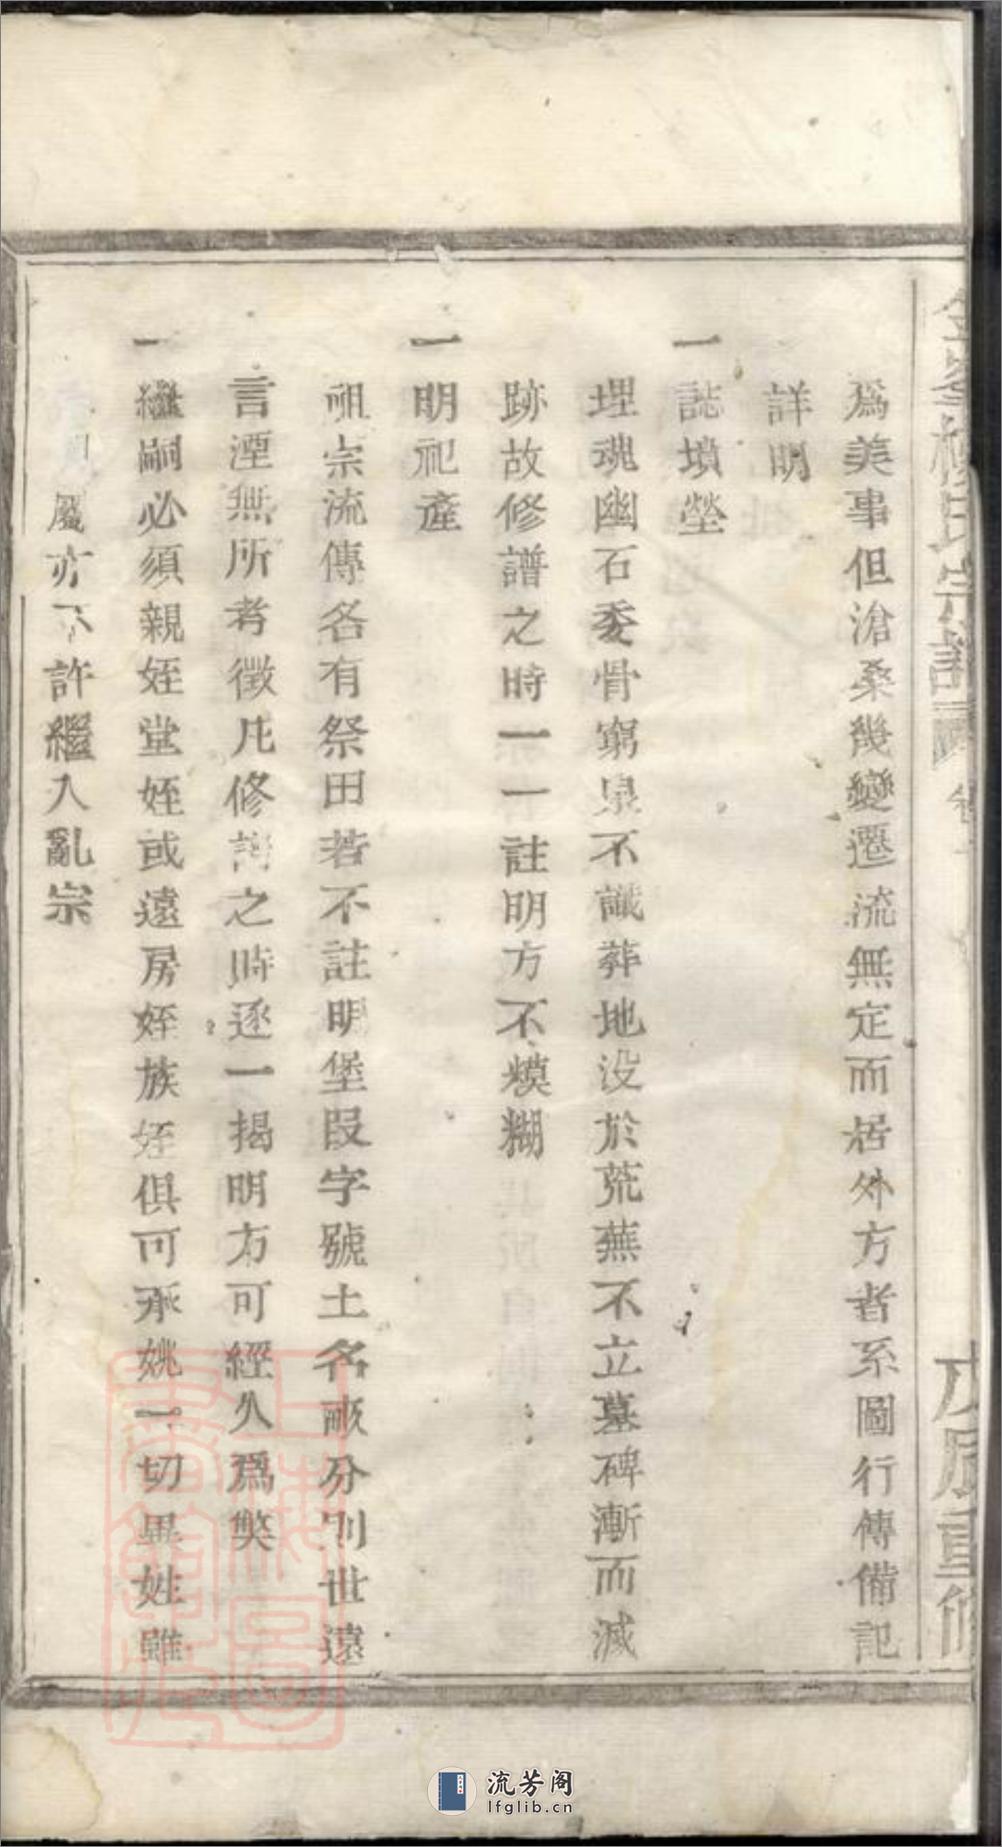 氏宗譜 卷
戊辰重修
爲美事但滄桑幾變遷流無定而居外方者系圖行傳備記
詳明
一誌墳塋
埋魂幽石委骨窮泉不識葬地没於荒蕪不立墓碑漸而滅
跡故修譜之時一一註明方不模糊
一明祀產
祖宗流傳名有祭田若不註明堡段字號土名畝分則世遠
言湮無所考徵凡修譜之時逐一揭明方可經久爲獘
一繼嗣必須親姪堂姪或遠房姪族姪俱可承姚一切異姓雖
屬亦不許繼入亂宗
上海圖書館藏
流芳阁
lfglib.cn